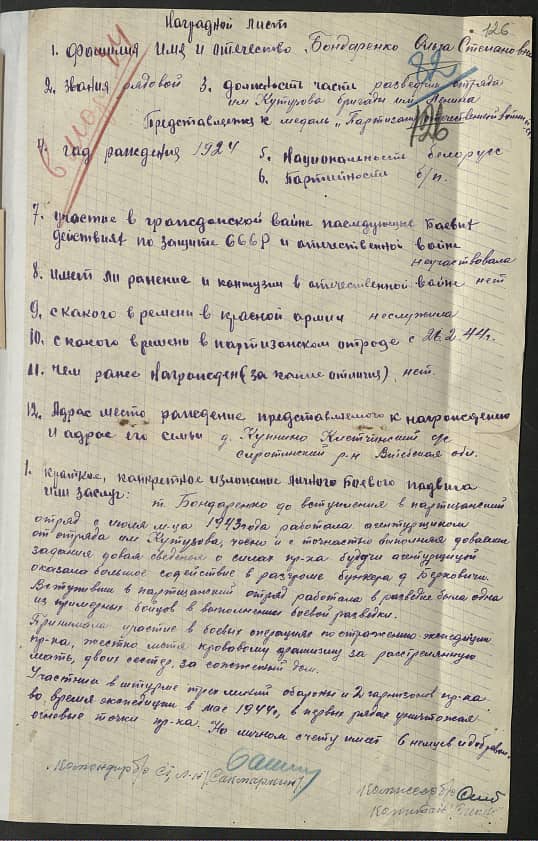 126
Наградной лист
1. фамилия имя и отечество Бондаренко Степановна
2. звания рядовой 3. должность часть развед отряда
им Кутузова бригады им Ленина
Представляется к медаль „Партизан отечественной войны
126
4. год рождения 1924 5. Национальность белорус
6. Партийность б/п.
7. участие в гражданской войне последующие боевых
действиях по защите СССР и отечественной войне
неучаствовала
8. имеет ли ранение и контузии в отечественной войне нет
9. с какого времени в красной армии неслужила
10. с какого времени в партизанском отряде с 2.44г.
11. Чем ранее Награжден (за какие отличия), нет.
12. Адрас место рождение представляемого к награждению
и адрас его семьи д. с/с
сиротинский р-н Витебская обл.
1. краткое, конкретное изложение личного боевого подвига
или заслуг: т. Бондаренко до вступления в партизанский
отряд с июля м-ца 1943 года работала агентурщиком
от отряда им Кутузова, чесно и с точностью выполняя
задания давая сведения о силах пр-ка будучи агентурщицой
оказала большое содействие в разгроме бункера д
Вступивши в партизанский отряд работала в разведке была одна
из примерных бойцов в выполнении боевой разведки.
Принимала участие в боевых операциях по отражению экспедиции
пр-ка, жестко мстя кровавому фашизму за расстрелянную
мать, двоих сестер, за сожженый дом.
Участница в штурме трех линий обороны и 2 гарнизонов пр-ка
во время экспедиции в мае 1944г, в первых рядах уничтожая
огневые точки пр-ка. На личном счету имеет 6 немцев
Командир б/о
Комиссар б/о
Капитан